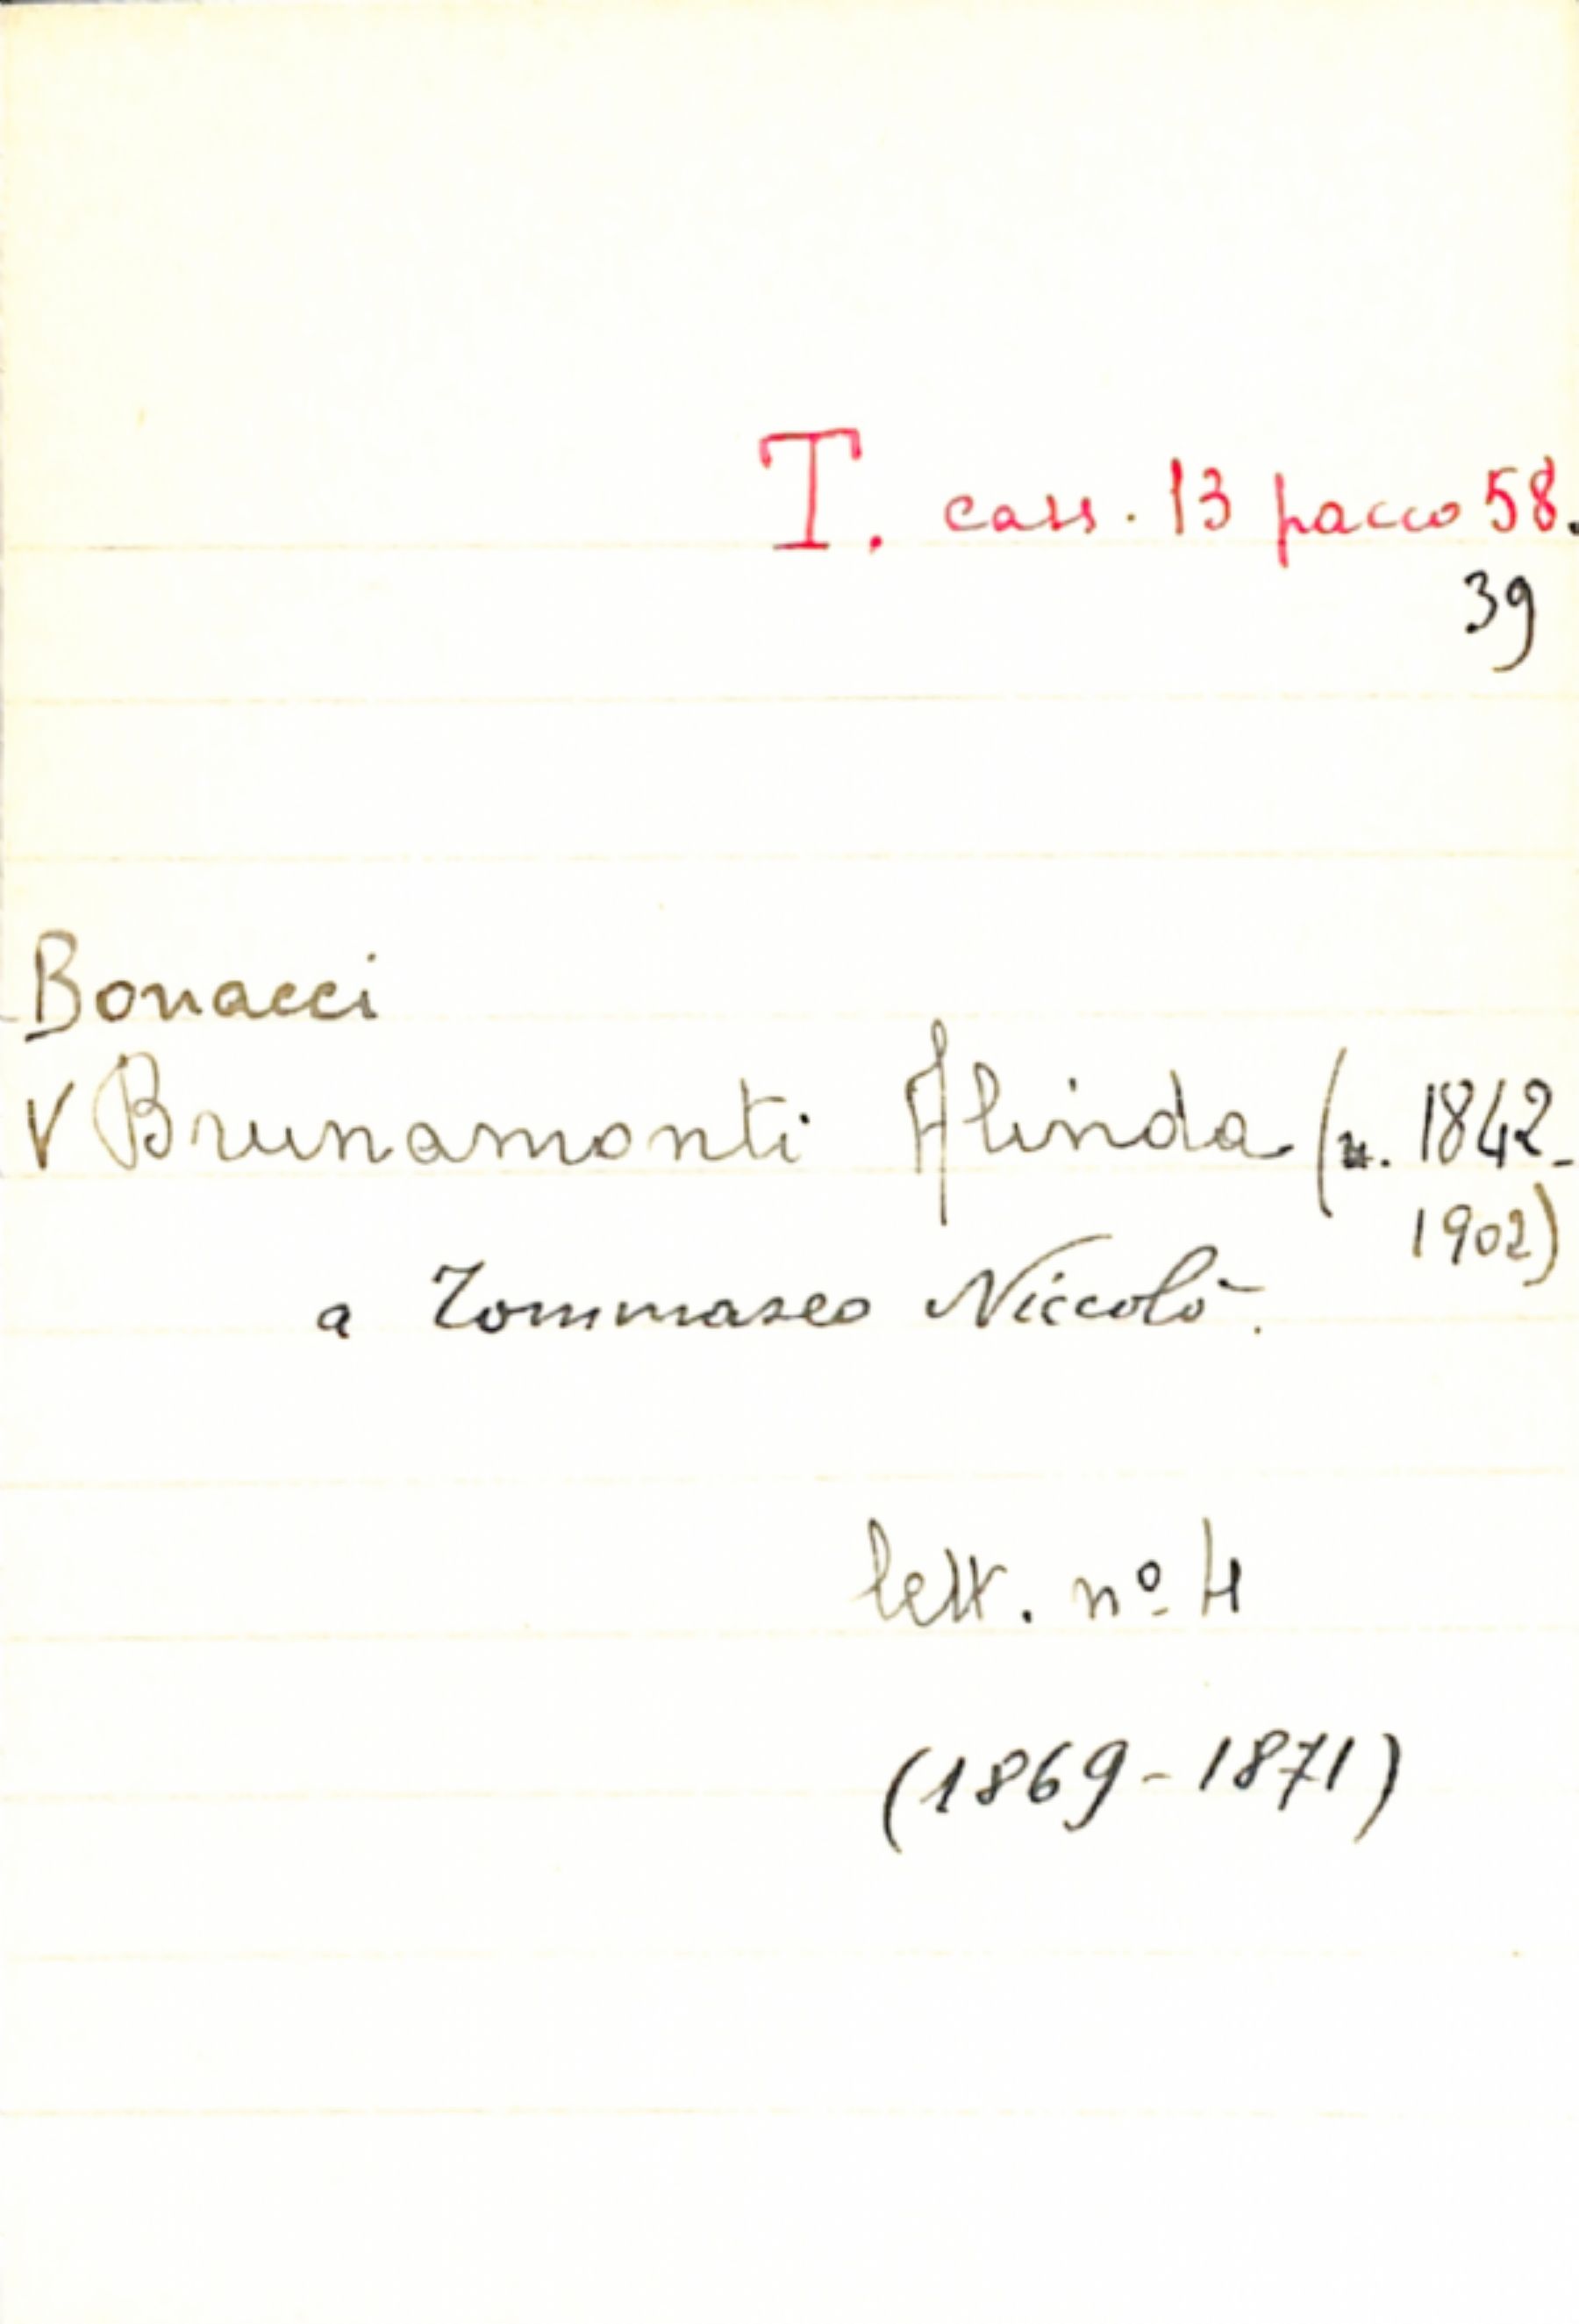 T. cass. 13 pacco 58.
39
Bonacci
V Brunamonti Alinda (n. 1842-
1902)
a Tommaseo Niccolò.
lett. nº 4
(1869-1871)